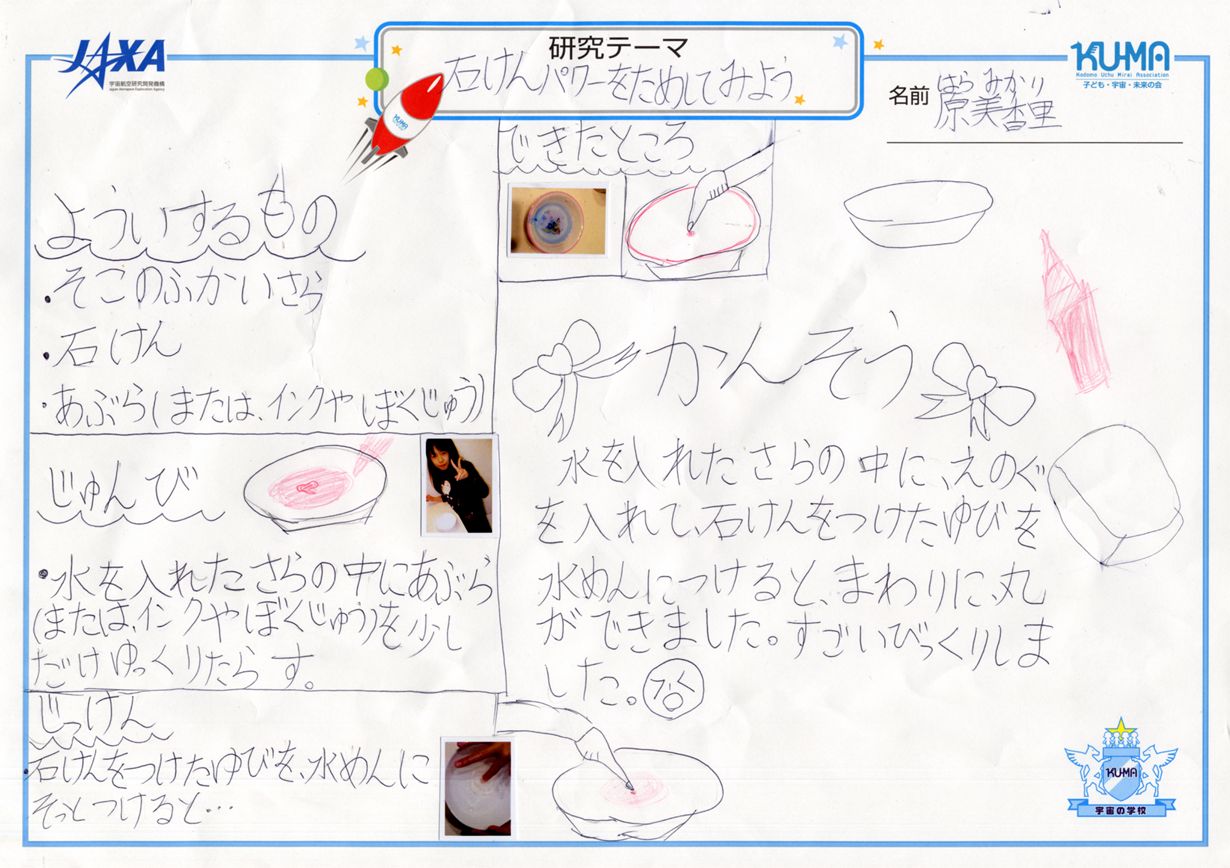 JAXA
宇宙航空研究開発機構
Japan Aerospace Exploration Agency
研究テーマ
石けんパワーをためしてみよう
KUMA
KUMA
Kodomo Uchu Mirai Association
子ども・宇宙・未来の会
名前
はら みかり
原美香里
よういするもの
・そこのふかいさら
・石けん
・あぶら(または、インクやぼくじゅう)
じゅんび
・水を入れたさらの中にあぶら
(または、インクやぼくじゅう)を少し
だけゆっくりたらす。
じっけん
・石けんをつけたゆびを、水めんに
そっとつけると…
できたところ
かんそう
水を入れたさらの中に、えのぐ
を入れて、石けんをつけたゆびを
水めんにつけると、まわりに、丸
ができました。すごいびっくりしま
した。
KUMA
宇宙の学校